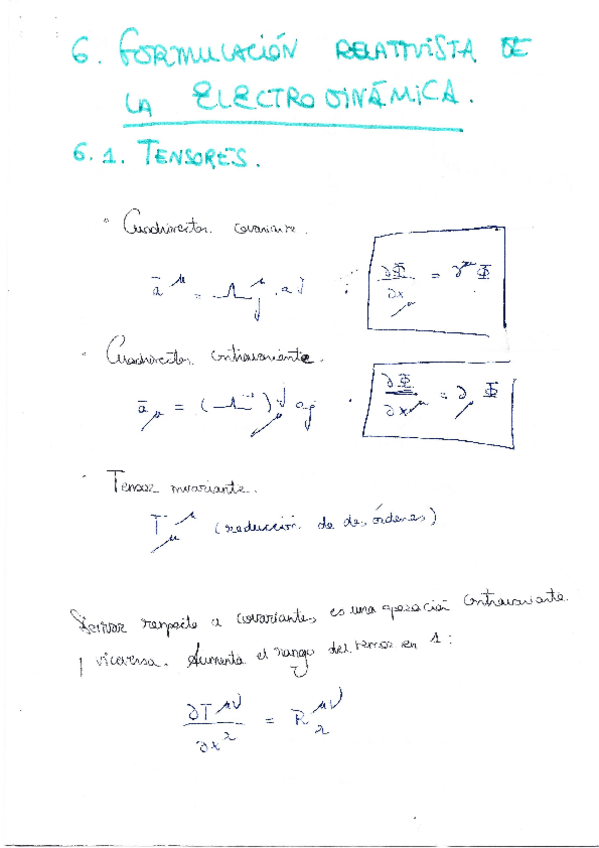 6. FORMULACIÓN RELATIVISTA DE
LA ELECTRODINÁMICA.
6.1. TENSORES.
· Cuadrivector covariante.
ā^μ = Λ^μ_j . a^j
∂Φ/∂x_μ = ∂^μ Φ
· Cuadrivector contravariante.
ā_μ = (Λ^-1)_μ^j a_j
∂Φ/∂x^μ = ∂_μ Φ
· Tensor invariante.
T_μ^μ (reducción de dos órdenes)
Derivar respecto a covariantes es una operación contravariante.
y viceversa. Aumenta el rango del tensor en 1:
∂T^μν/∂x^λ = R^μν_λ